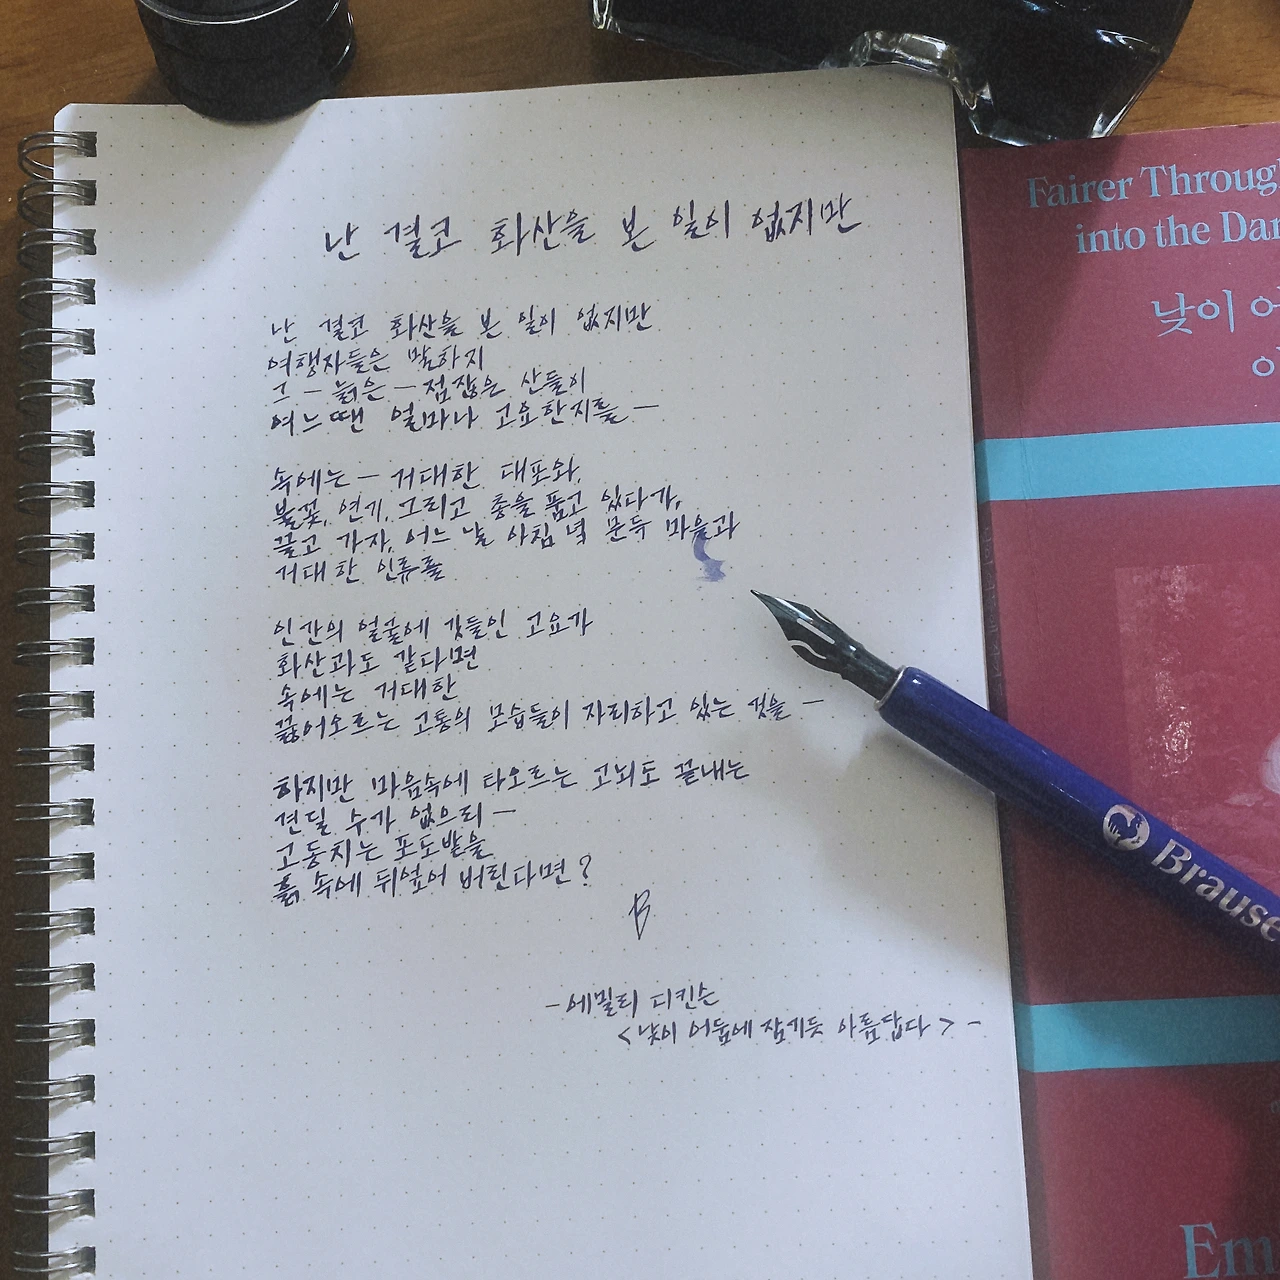 난 결코 화산을 본 일이 없지만
난 결코 화산을 본 일이 없지만
여행자들은 말하지
그 – 늙은 – 점잖은 산들이
여느 땐 얼마나 고요한지를 –
속에는 – 거대한 대포와,
불꽃, 연기, 그리고 총을 품고 있다가,
끌고 가자, 어느 날 아침 녘 문득 마을과
거대한 인류를
인간의 얼굴에 깃들인 고요가
화산과도 같다면
속에는 거대한
끓어오르는 고통의 모습들이 자리하고 있는 것을 –
하지만 마음속에 타오르는 고뇌도 끝내는
견딜 수가 없으리 –
고동치는 포도밭을
흙 속에 뒤엎어 버린다면?
B
- 에밀리 디킨슨
<낮이 어둠에 잠기듯 아름답다> -
Fairer Through
into the Dar
낮이 어
Brause
Em